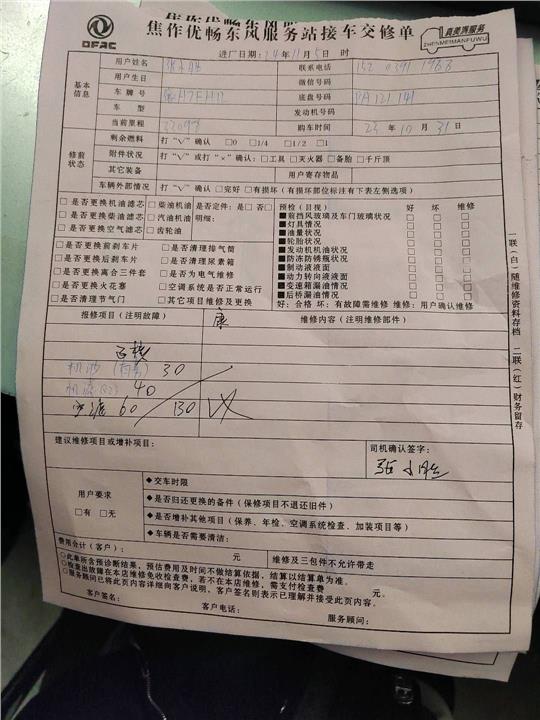 焦作优畅东风服务站接车交修单
DFAC
真美满服务
ZHENMEIMANFUWU
进厂日期: 24年11月5日 时
基本信息
用户姓名 联系电话 152 0391 1988
用户生日 微信号码
车牌号 底盘号码
车型 发动机号码
当前里程 购车时间 23年10月31日
修前状态
剩余燃料 打“V”确认 □0 □1/4 □1/2 □1
附件状况 打“V”或打“×”确认: □工具 □灭火器 □备胎 □千斤顶
其它装备 用户寄存物品
车辆外部情况 打“V”确认 □完好 □有损坏(有损坏部位标注有下表左侧选项)
□是否更换机油滤芯 □柴油机油 □是否定件: 是□ 否□
□是否更换柴油滤芯 □汽油机油 明细:
□是否更换空气滤芯 □齿轮油
□是否更换前刹车片 □是否清理排气筒
□是否更换后刹车片 □是否清理尿素箱
□是否更换离合三件套 □是否为电气维修
□是否更换火花塞 □空调系统是否正常运行
□是否清理节气门 □其它项目维修及更换
预检(目视) 好 坏 维修
■前挡风玻璃及车门玻璃状况 □ □ □
■灯具情况 □ □ □
■油量状况 □ □ □
■轮胎状况 □ □ □
■发动机机油状况 □ □ □
■防冻防锈瓶状况 □ □ □
■制动液液面 □ □ □
■动力转向液液面 □ □ □
■变速箱漏油情况 □ □ □
■后桥漏油情况 □ □ □
好: 合格 坏: 有故障需维修 维修: 用户确认维修
报修项目(注明故障) 维修内容(注明维修部件)
30
40
60 130
建议维修项目或增补项目:
司机确认签字:
用户要求
□有 □无
◆交车时限
◆是否归还更换的备件(保修项目不退还旧件)
◆是否增补其他项目(保养、年检、空调系统检查、加装项目等)
◆车辆是否需要清洁:
费用合计(客户): 元 维修及三包件不允许带走
○此单所含预诊断结果,预估费用及时间不做结算依据,结算以结算单为准。
○检查出故障在本店维修免收检查费,若不在本店维修,需支付检查费 元。
○服务顾问已将此页内容详细向客户说明,客户签名则表示已理解并接受此页内容。
客户签名: 客户电话: 服务顾问:
一联(白)随维修资料存档 二联(红)财务留存